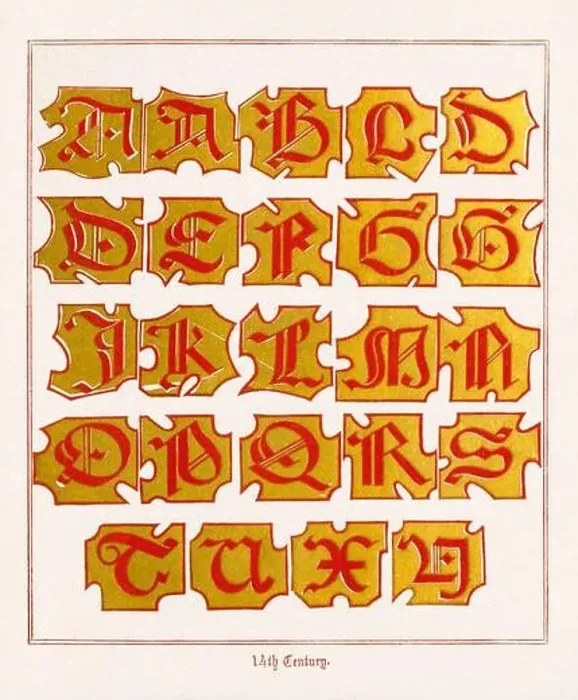 A A B C D
D E F G G
J K L M N
O P Q R S
T U X Y
14th Century.